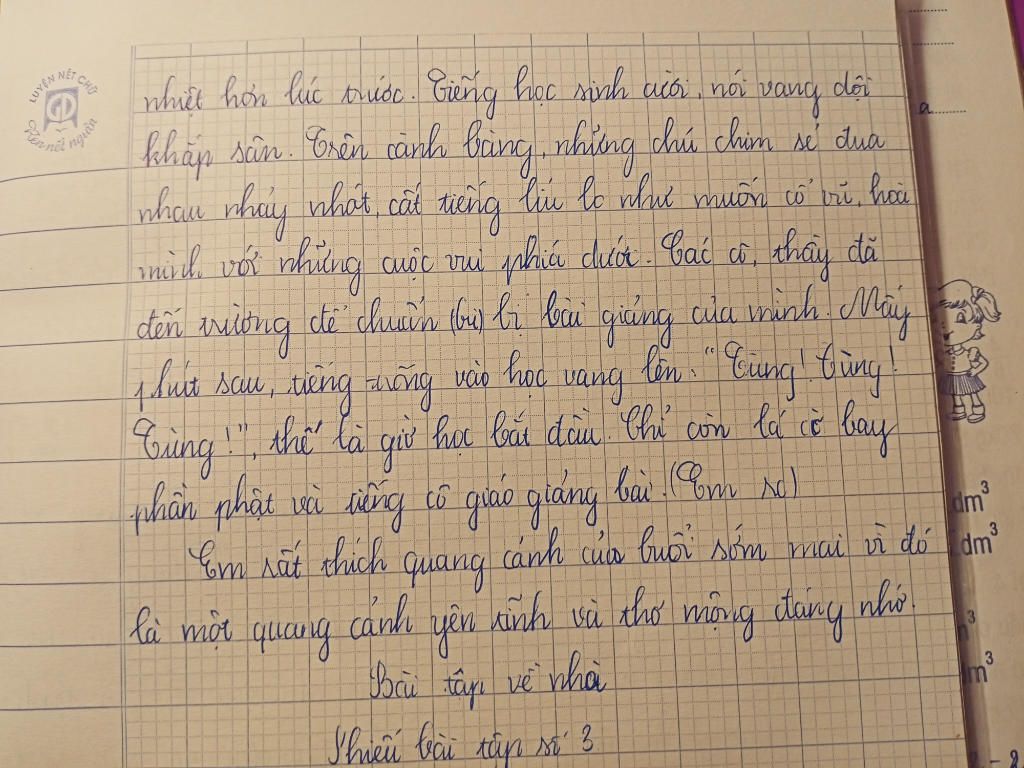 LUYỆN NÉT CHỮ
Rèn nết người
nhiệt hơn lúc trước. Tiếng học sinh cười, nói vang dội
khắp sân. Trên cành bàng, những chú chim sẻ đua
nhau nhảy nhót, cất tiếng líu lo như muốn cổ vũ, hoà
mình với những cuộc vui phía dưới. Các cô, thầy đã
đến trường để chuẩn (bị) bị bài giảng của mình. Mấy
phút sau, tiếng trống vào học vang lên: "Tùng! Tùng!
Tùng!", thế là giờ học bắt đầu. Chỉ còn lá cờ bay
phần phật và tiếng cô giáo giảng bài. (Em
Em rất thích quang cảnh của buổi sớm mai vì đó
là một quang cảnh yên tĩnh và thơ mộng đáng nhớ.
Bài tập về nhà
Phiếu bài tập số 3
a
dm³
dm³
m³